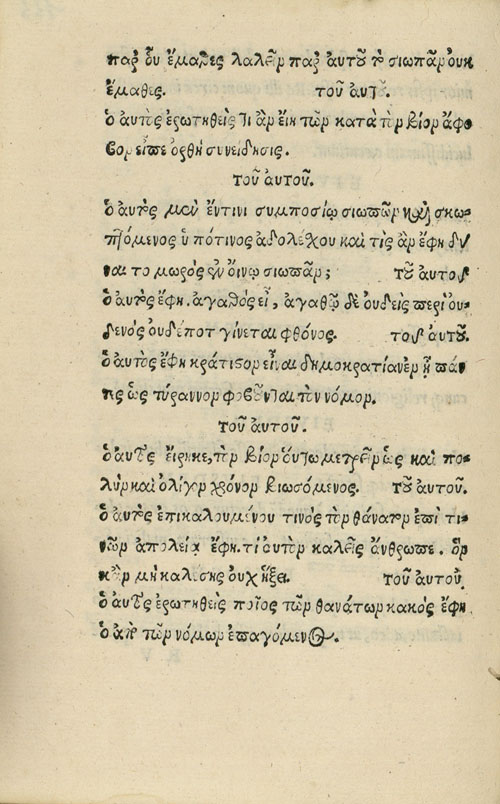 παρ οὗ ἔμαθες λαλεῖν παρ αὐτοῦ τὸ σιωπᾶν οὐκ
ἔμαθες. τοῦ αὐτοῦ.
ὁ αὐτὸς ἐρωτηθεὶς τί ἂν εἴη τῶν κατὰ τὸν βίον ἄφο
βον εἶπε ὀρθὴ συνείδησις.
τοῦ αὐτοῦ.
ὁ αὐτὸς μὲν ἔν τινι συμποσίῳ σιωπῶν καὶ σκω-
πτόμενος ὑπό τινος ἀδολέχου καὶ τίς ἂν ἔφη δύ
ναιτο μωρὸς ὢν οἴνῳ σιωπᾶν; τοῦ αὐτοῦ
ὁ αὐτὸς ἔφη. ἀγαθὸς εἶ, ἀγαθῷ δὲ οὐδεὶς περὶ οὐ-
δενὸς οὐδέποτ γίνεται φθόνος. τοῦ αὐτοῦ.
ὁ αὐτὸς ἔφη κράτιστον εἶναι δημοκρατίαν ἐν ᾗ πάν
τες ὡς τύραννον φοβοῦνται τὸν νόμον.
τοῦ αὐτοῦ.
ὁ αὐτὸς εἴρηκε, τὸν βίον οὕτω μετρεῖν ὡς καὶ πο-
λὺν καὶ ὀλίγον χρόνον βιωσόμενος. τοῦ αὐτοῦ.
ὁ αὐτὸς ἐπικαλουμένου τινὸς τὸν θάνατον ἐπὶ τι-
νῶν ἀπολείᾳ ἔφη. τί αὐτὸν καλεῖς ἄνθρωπε. ὃν
κἂν μὴ καλέσῃς οὐχ ἥξει. τοῦ αὐτοῦ.
ὁ αὐτὸς ἐρωτηθεὶς ποῖος τῶν θανάτων κακός ἔφη
ὁ ἀπὸ τῶν νόμων ἐπαγόμενος.